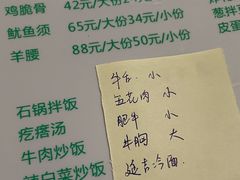 鸡脆骨 42元/大份2
鱿鱼须 65元/大份34元/小份
羊腰 88元/大份50元/小份
葱拌
皮蛋
石锅拌饭
疙瘩汤
牛肉炒饭
辣白菜炒饭
牛舌 小
五花肉 小
肥牛 小
牛胸 大
延吉冷面